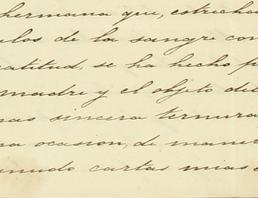 hermana que, estrechad
ulos de la sangre con
ratitud, se ha hecho p
madre y el objeto del
mas sincera ternura
na ocasion, de mane
enudo cartas mias a